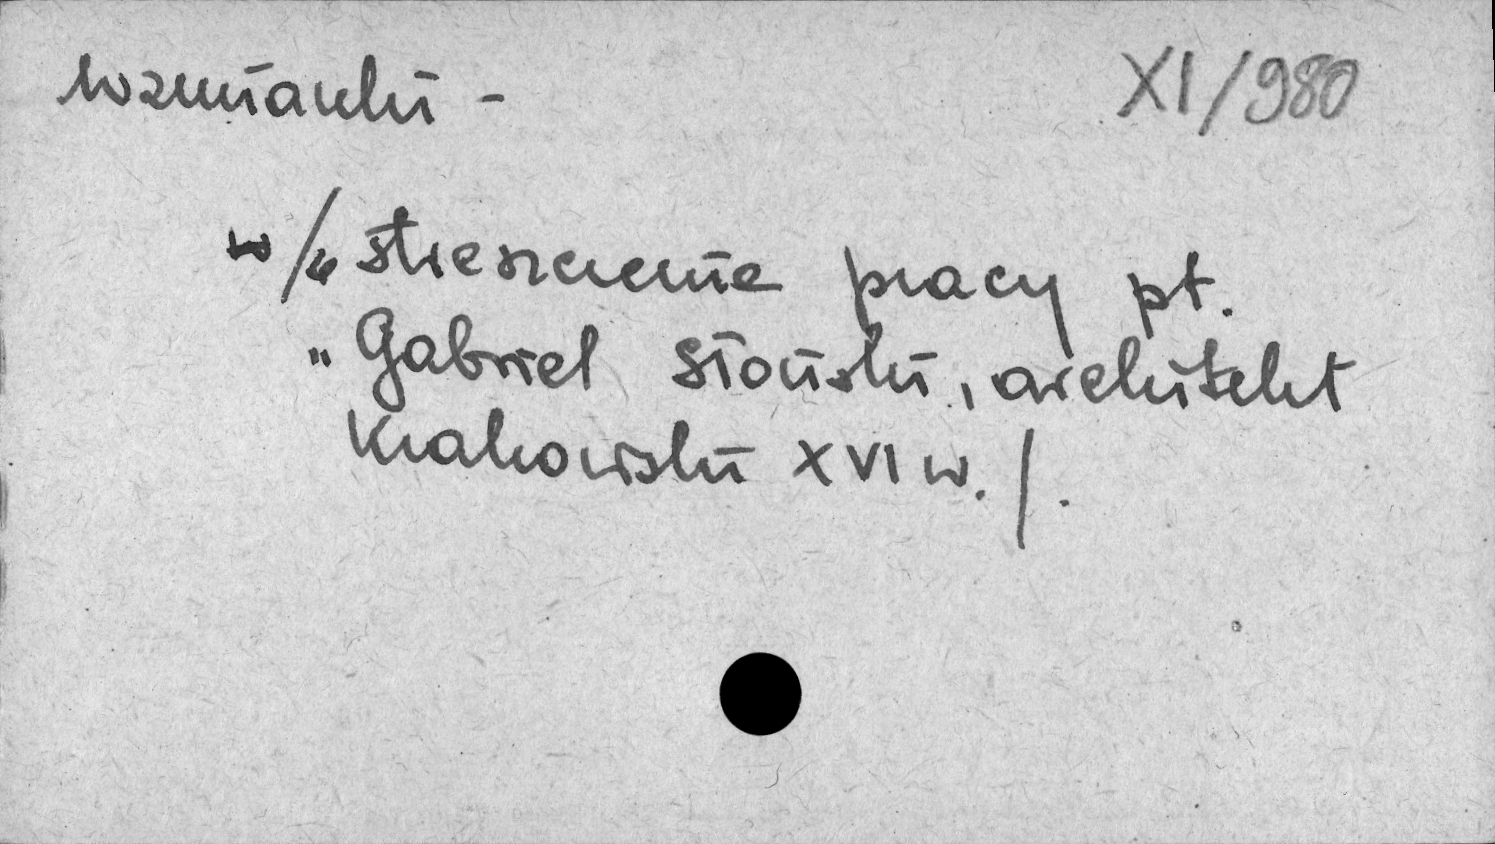 wzmianki -
XI/980
w /„ streszczenie pracy pt.
„Gabriel Słoński, architekt
krakowski XVI w. /.